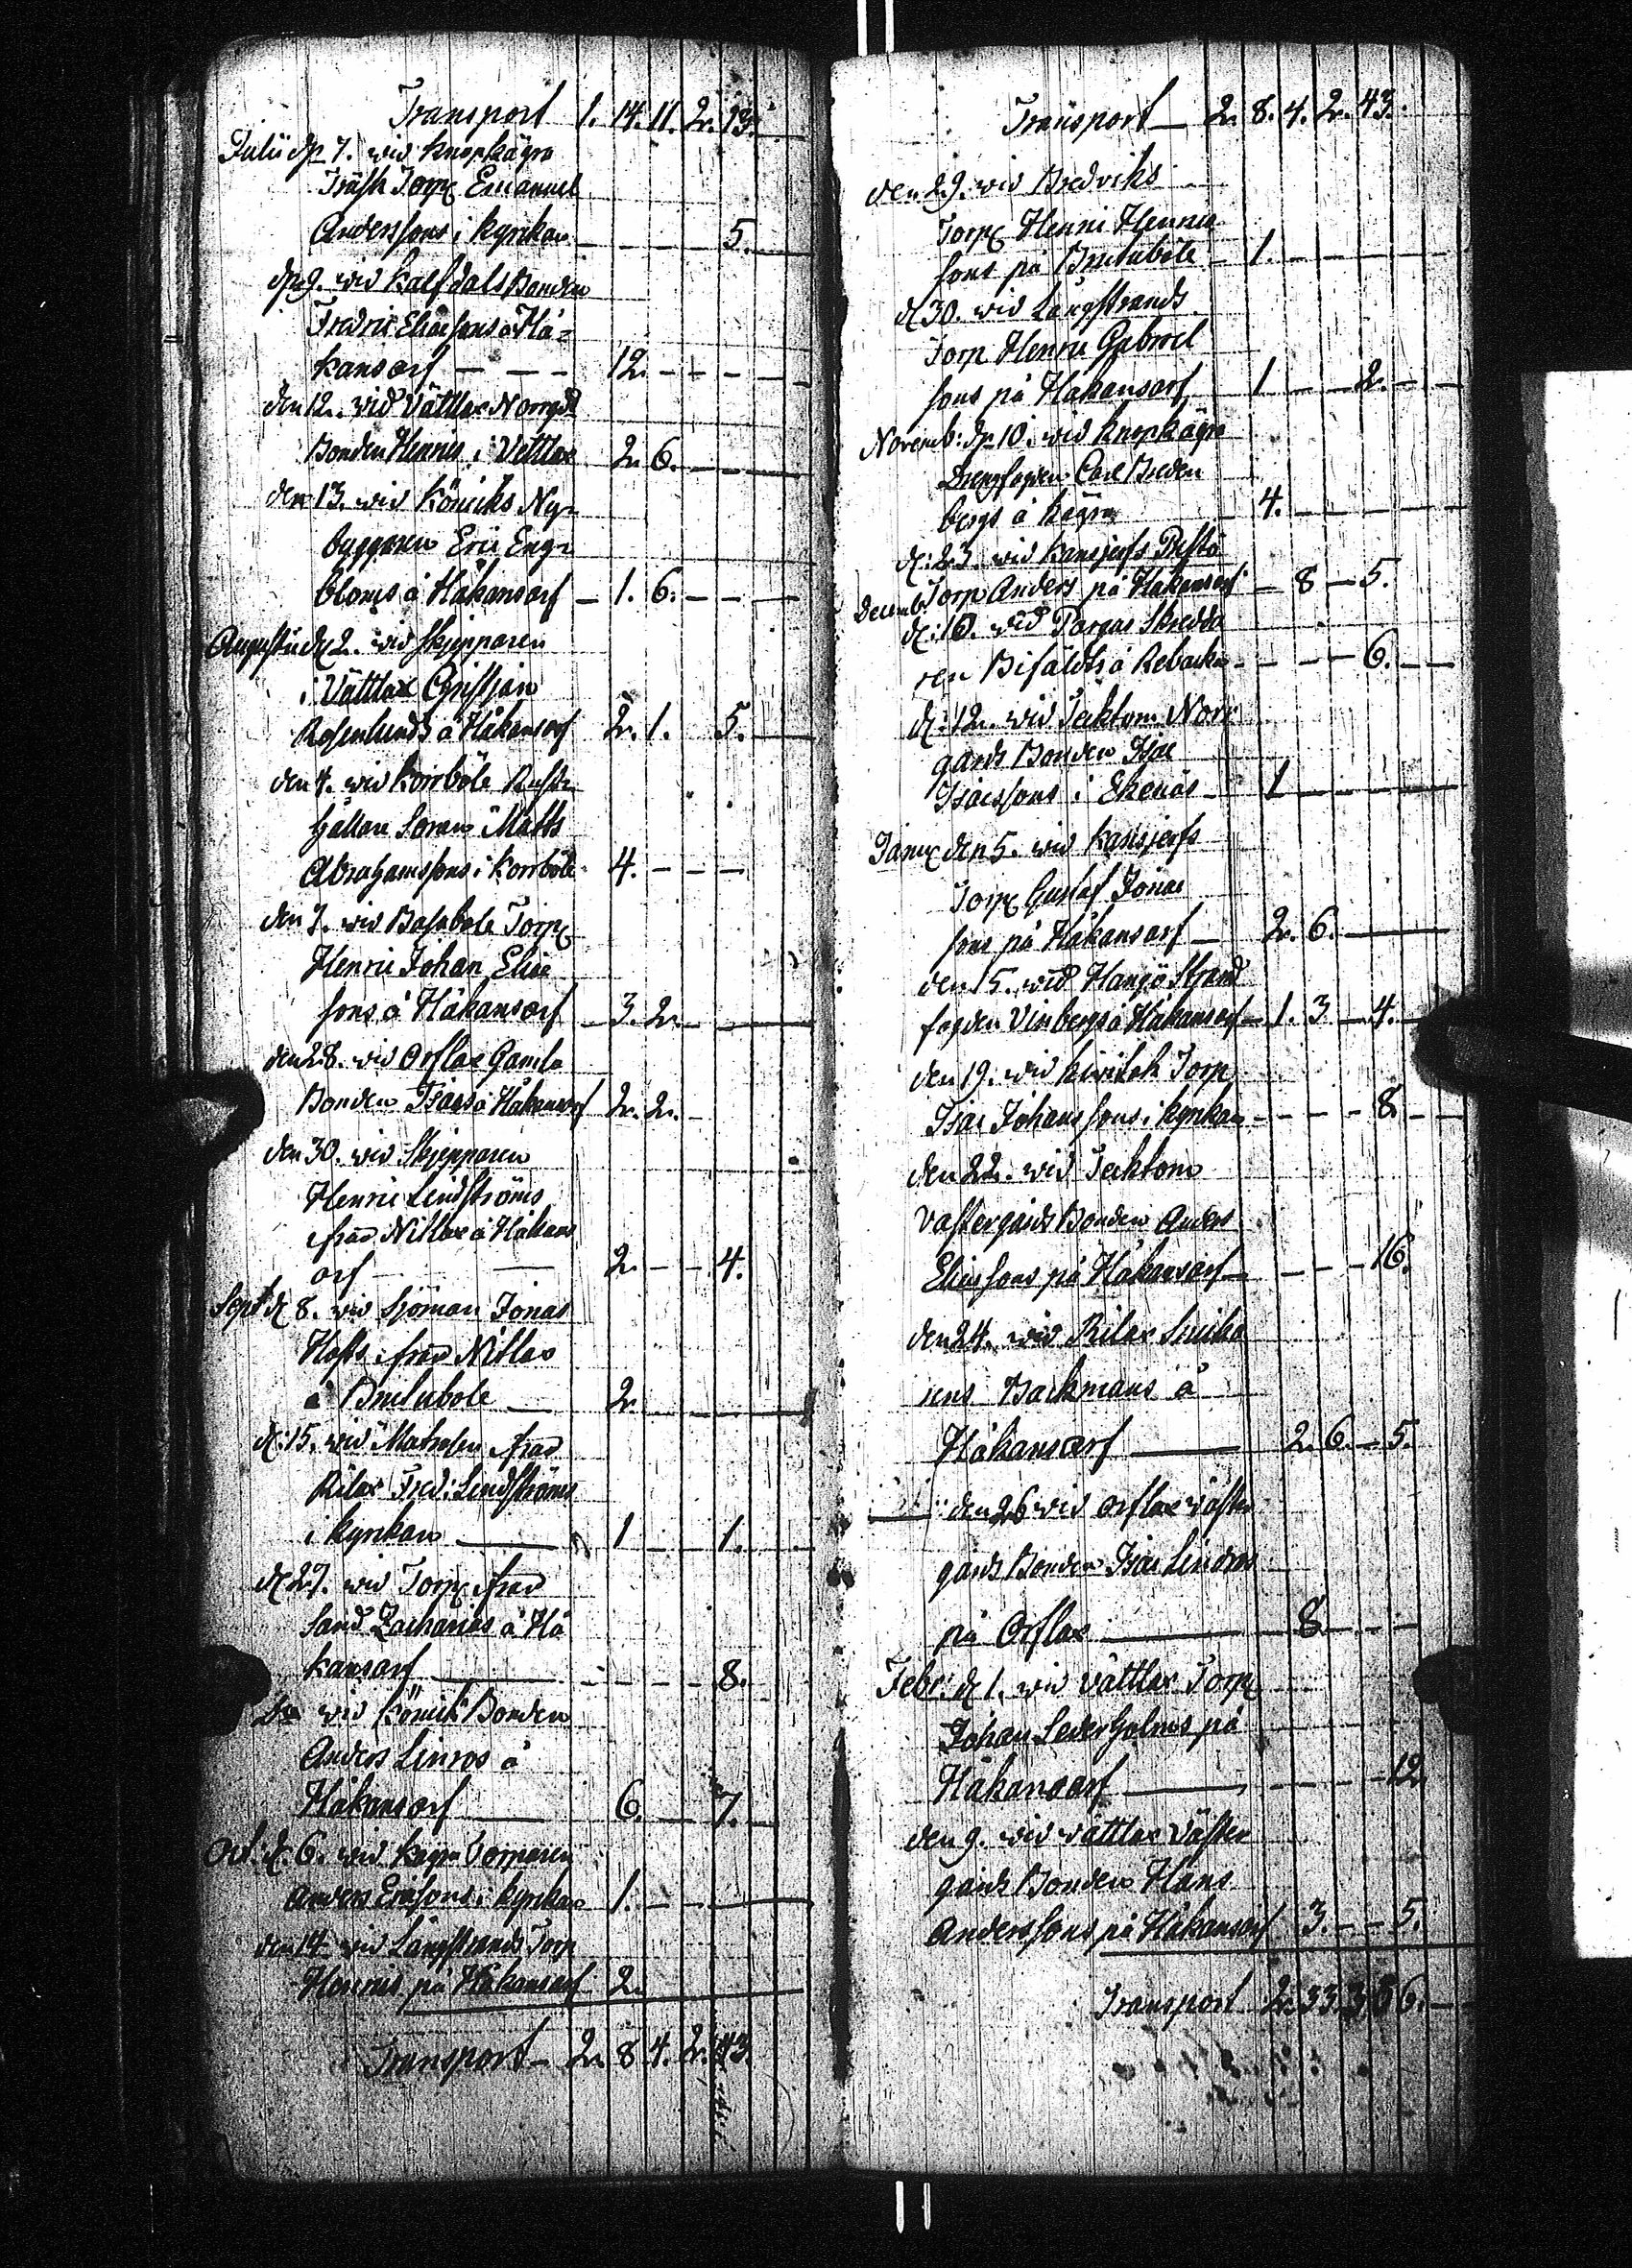 Transport 1. 14. 11. 2. 13.
Julii d 7. wid Knopkägra
Träsk Torp Emanuel
Anderssons i Kyrkan — — — — 5.
d 9. wid Kalfdals Bonden
Fredric Eliæsons å Hå-
kansarf — — — 12. — — — —
den 12. wid Vättlax Norrgd
Bonden Henrics i Vettlax 2. 6. — — —
den 13. wid Köniks Ny-
byggaren Eric Eng-
bloms å Håkansarf — 1. 6. — — —
Augusti d 2. wid Skjepparen
i Vättlax Cristjan
Rosenlunds å Håkansarf 2. 1. 5. —
den 4. wid Korsböle Rust-
hållare Sorans Matts
Abrahamssons i Korsböle 4. — — —
den 7. wid Basabole Torp
Henric Johan Eliæ
sons å Håkansarf — 3. 2. — — —
den 28. wid Orslax Gamla
Bonden Isacs å Håkansarf 2. 2. —
den 30. wid Skjepparen
Henric Lindströms
ifrån Nitlax å Håkans
arf — — 2. — — 4.
Sept d 8. wid Sjöman Jonas
Hofts ifrån Nitlax
å Brulubole — 2. — — — —
d: 15. wid Matrosen ifrån
Rilax Fred: Lindströms
i Kyrkan — 1 — — 1. —
d 27. wid Torp ifrån
Sand Zacharias å Hå
kansarf — — — — — 8.
wid Könick Bonden
Anders Linros å
Håkansarf — 6. — — 7. —
Oct: d: 6. wid Kägra Torparen
Anders Ersons i Kyrkan 1. — — —
den 14. wid Långstrands Torp
Henrics på Håkansarf 2. —
Transport — 2. 8 4. 2. 43.
Transport — 2. 8. 4. 2. 43.
den 29. wid Bredviks
Torp Henric Henric
sons på Brulubole — 1. — — — —
d 30. wid Långstrands
Torp Henric Gabriel
sons på Håkansarf 1 — — 2. — —
Novemb: d 10. wid Knopkägra
Carl Breden
bergs å Kägra — 4. — — — —
d: 23. wid Kansjerfs
Torp Anders på Håkansarf — 8 — 5.
Decemb
d: 10. wid Pargas Skredda
ren å Rebacka — — — — 6. —
d: 12. wid Tecktom Norr
gårds Bonden Isac
Isacssons i Ekenäs — 1 — — — —
Janu den 5. wid Kansjerfs
Torp Gustaf Jonas
sons på Håkansarf — 2. 6. —
den 15. wid Hangö Strand
fogden Vinbergs å Håkansarf — 1. 3 — 4.
den 19. wid Torp
Isac Johanssons i Kyrkan — — — — 8 —
den 22. wid Tecktom
Vastergårds Bonden Anders
Eliassons på Håkansarf — — — — 16.
den 24. wid Rilax Snicka
rens Backmans å
Håkansarf — 2. 6. — 5.
den 26 wid Orslax väster
gårds Bonden Isac Lindros
på Orslax — — 8 — — —
Febr: d 1. wid Vättlax Torp
Johan Sederholms på
Håkansarf — — — — 12.
den 9. wid Vättlax Väster
gårds Bonden Hans
Anderssons på Håkansarf 3. — — 5.
Transport 2. 33. 3. 86. —